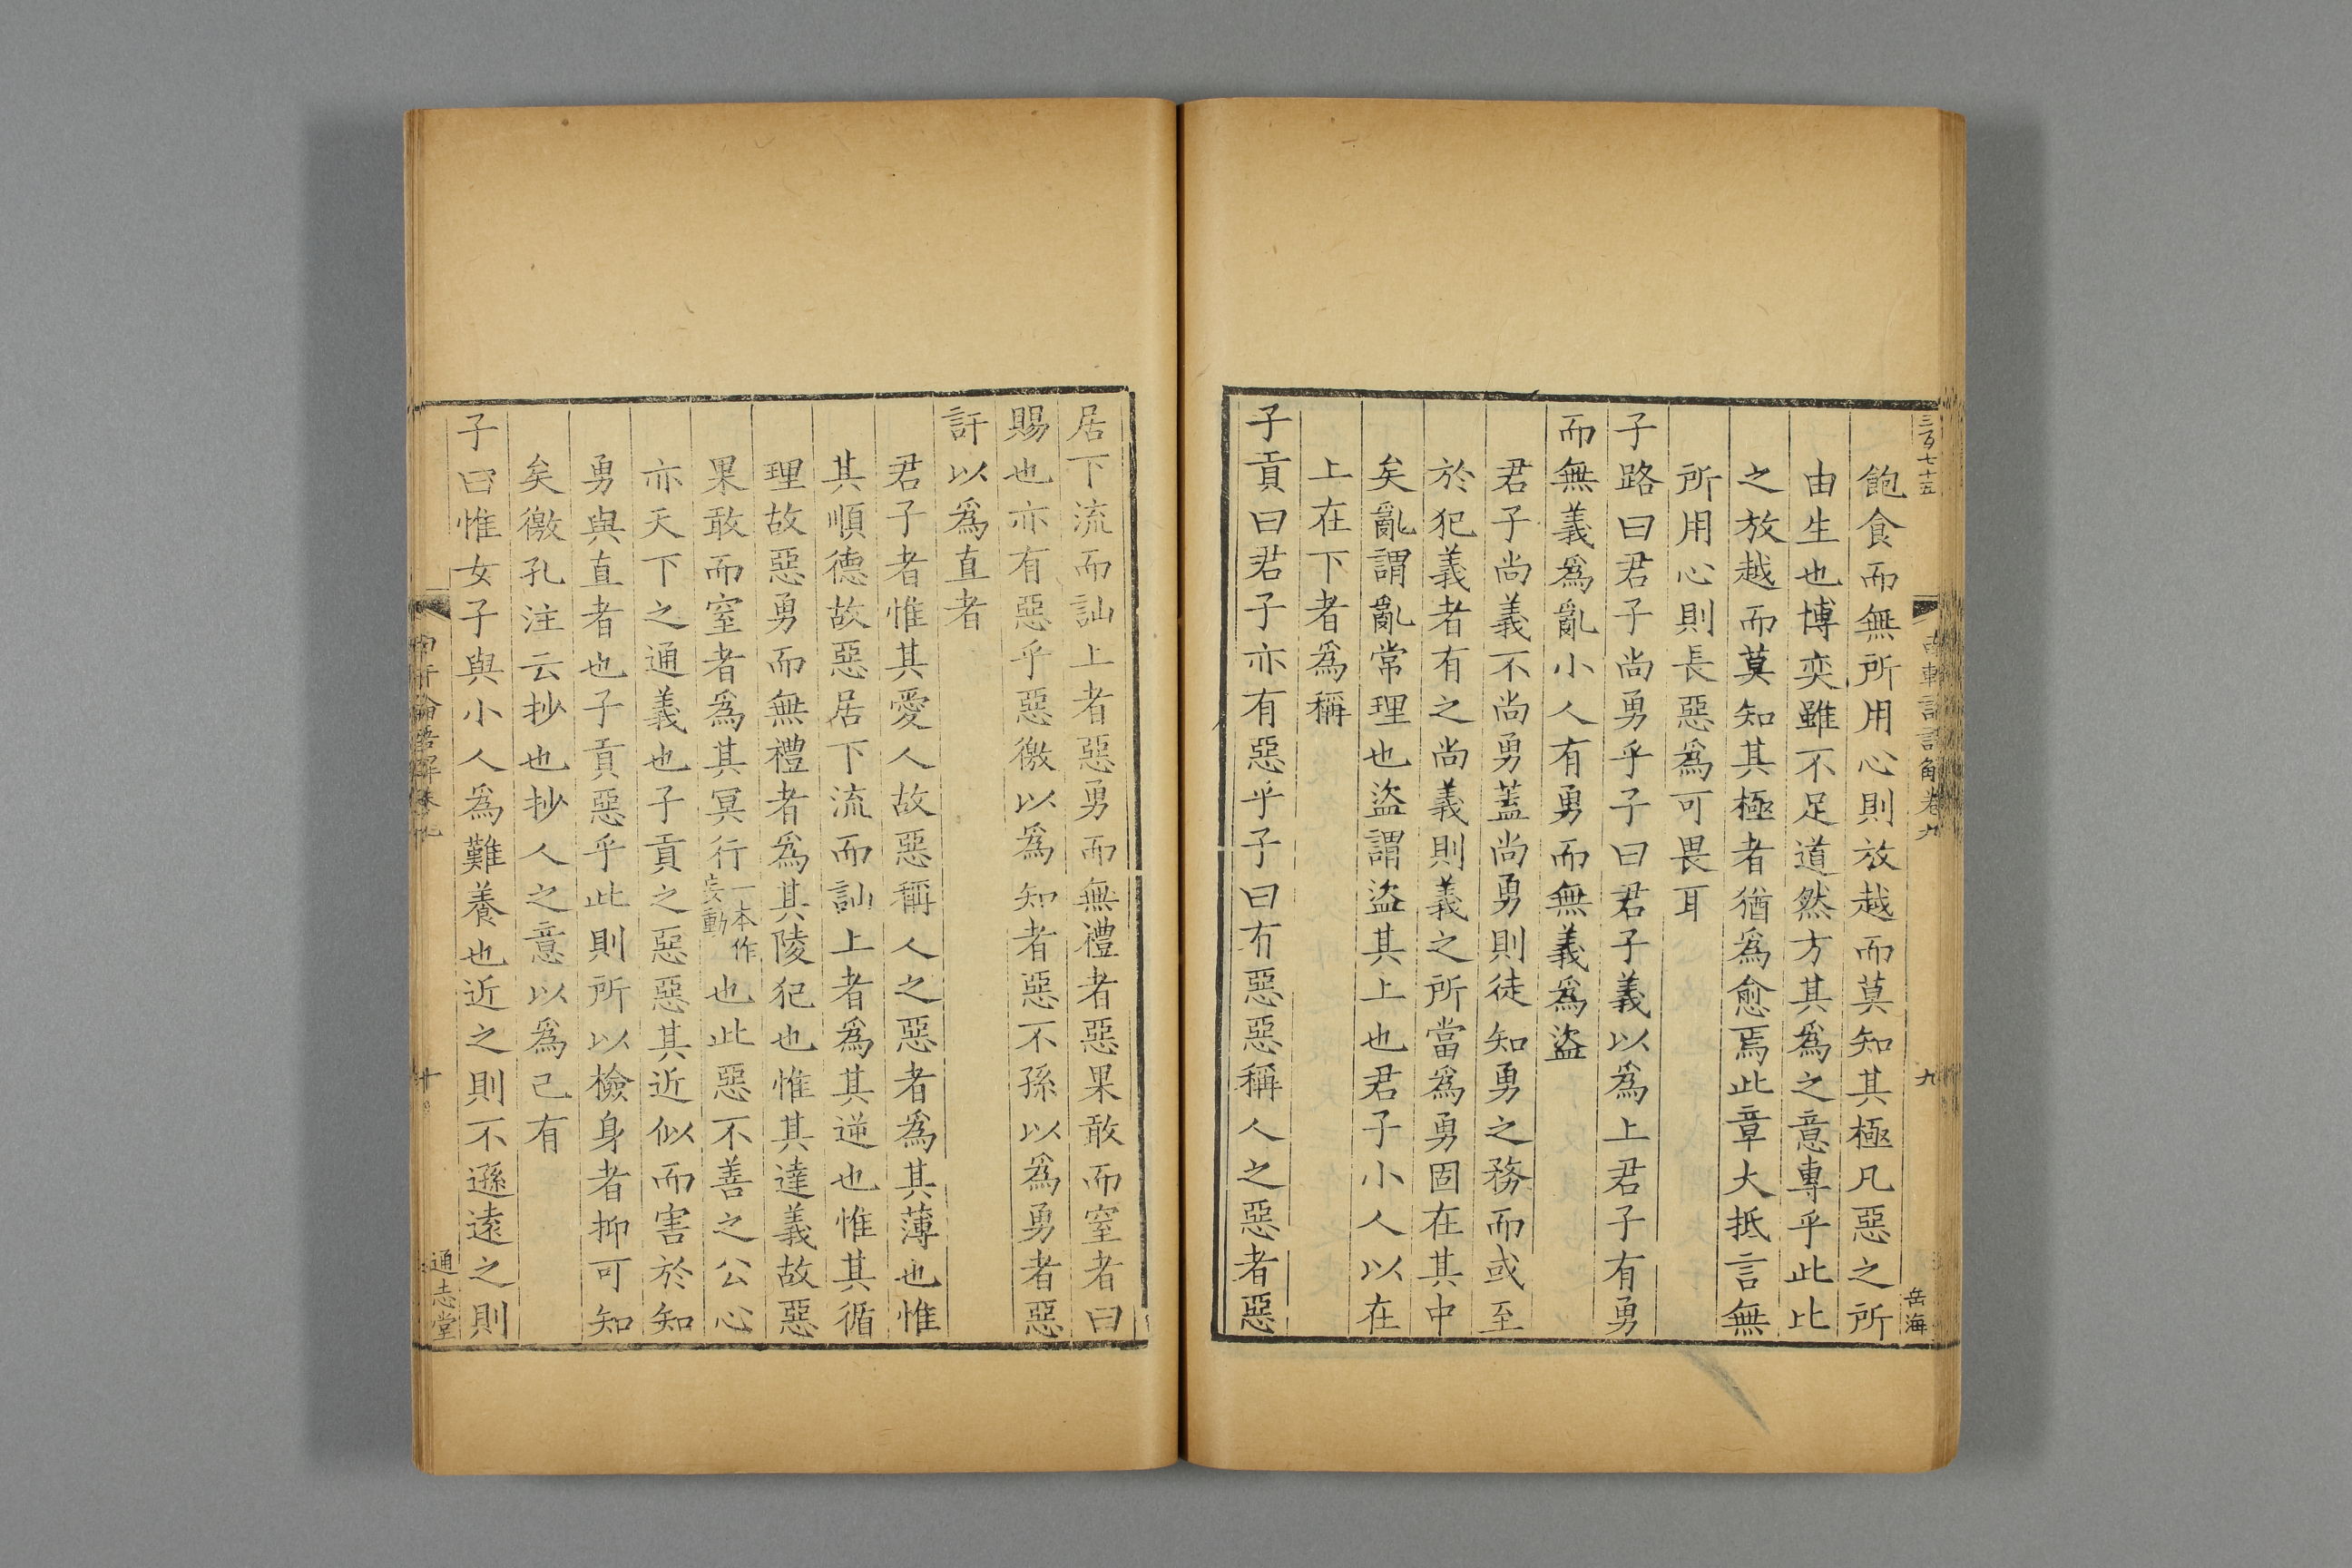 三百七十五
飽食而無所用心則放越而莫知其極凡惡之所
由生也博奕雖不足道然方其爲之意專乎此比
之放越而莫知其極者猶爲愈焉此章大抵言無
所用心則長惡爲可畏耳
子路曰君子尚勇乎子曰君子義以爲上君子有勇
而無義爲亂小人有勇而無義爲盜
君子尚義不尚勇蓋尚勇則徒知勇之務而或至
於犯義者有之尚義則義之所當爲勇固在其中
矣亂謂亂常理也盜謂盜其上也君子小人以在
上在下者爲稱
子貢曰君子亦有惡乎子曰有惡惡稱人之惡者惡
卷九
九
岳海
居下流而訕上者惡勇而無禮者惡果敢而窒者曰
賜也亦有惡乎惡徼以爲知者惡不孫以爲勇者惡
訐以爲直者
君子者惟其愛人故惡稱人之惡者爲其薄也惟
其順德故惡居下流而訕上者爲其逆也惟其循
理故惡勇而無禮者爲其陵犯也惟其達義故惡
果敢而窒者爲其冥行一本作妄動也此惡不善之公心
亦天下之通義也子貢之惡惡其近似而害於知
勇與直者也子貢惡乎此則所以檢身者抑可知
矣徼孔注云抄也抄人之意以爲己有
子曰惟女子與小人爲難養也近之則不遜遠之則
十
通志堂